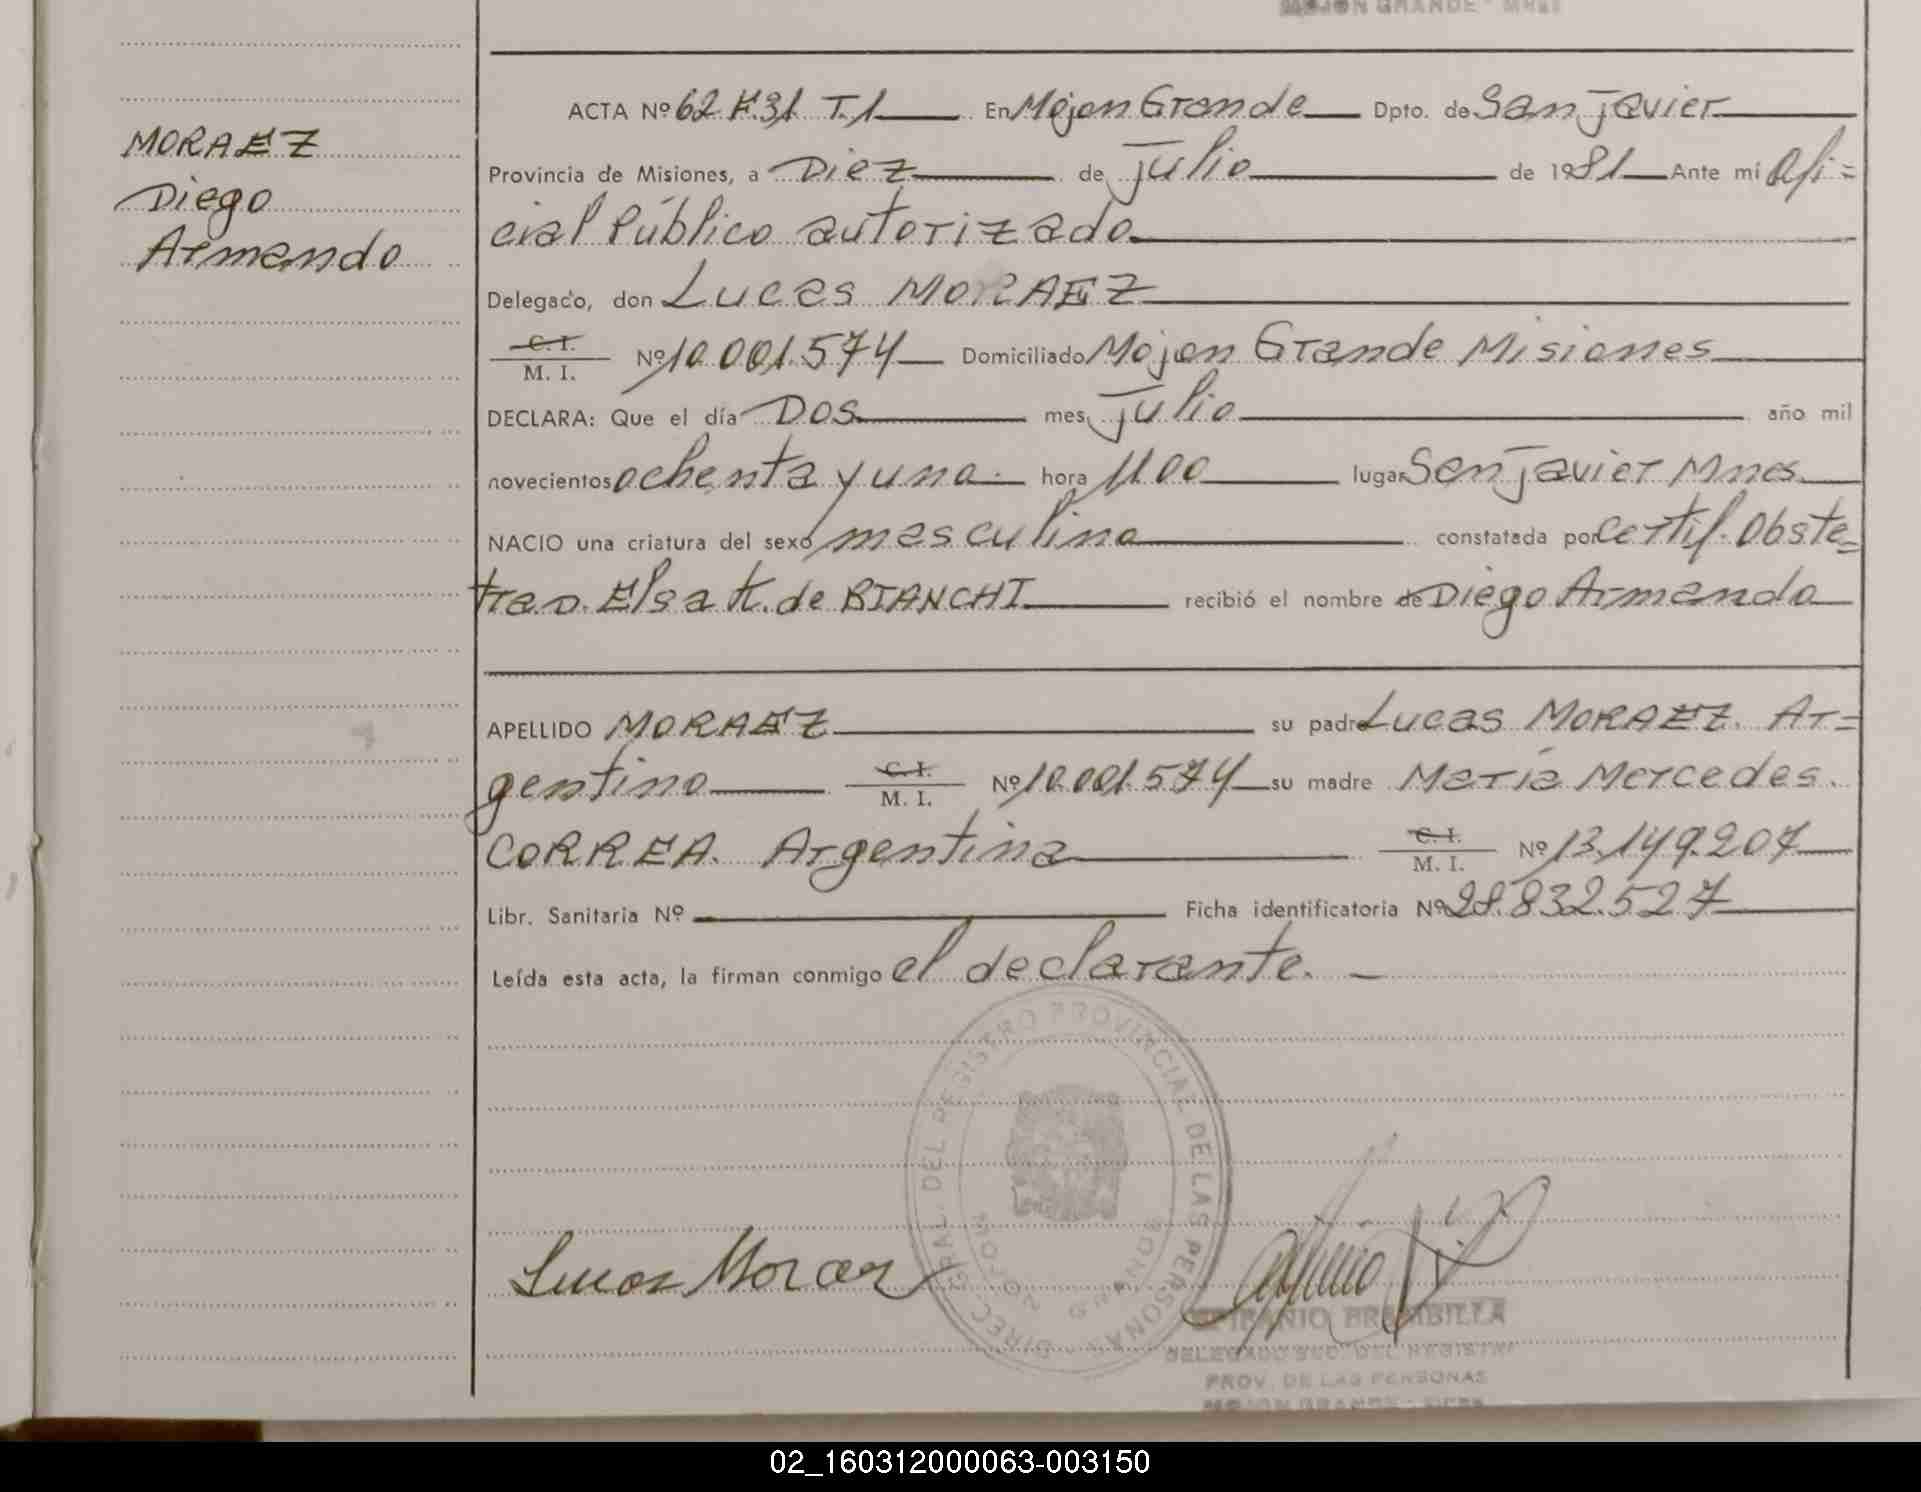 MOJON GRANDE - MNES
MORAEZ
Diego
Armando
ACTA Nº 62 F.31 T.1 En Mojon Grande Dpto. de San Javier
Provincia de Misiones, a Diez de Julio de 1981 Ante mí Ofi=
cial Público autorizado
Delegado, don Lucas MORAEZ
C. I.
M. I. Nº 10.001.574 Domiciliado Mojon Grande Misiones
DECLARA: Que el día Dos mes Julio año mil
novecientos ochenta y uno. hora 1100 lugar San Javier Mnes.
NACIO una criatura del sexo masculino constatada por Certif. Obste=
trao. Elsa K. de BIANCHI recibió el nombre de Diego Armando
APELLIDO MORAEZ su padre Lucas MORAEZ. Ar=
gentino C. I. M. I. Nº 10.001.574 su madre María Mercedes.
CORREA. Argentina C. I. M. I. Nº 13.149.207
Libr. Sanitaria Nº Ficha identificatoria Nº 28.832.527
Leída esta acta, la firman conmigo el declarante.
DIREC. GRAL. DEL REGISTRO PROVINCIAL DE LAS PERSONAS
MOJON GRANDE
Lucas Moraez
EPIFANIO BRAMBILLA
DELEGADO SEC. DEL REGISTRO
PROV. DE LAS PERSONAS
MOJON GRANDE - MNES
02_160312000063-003150